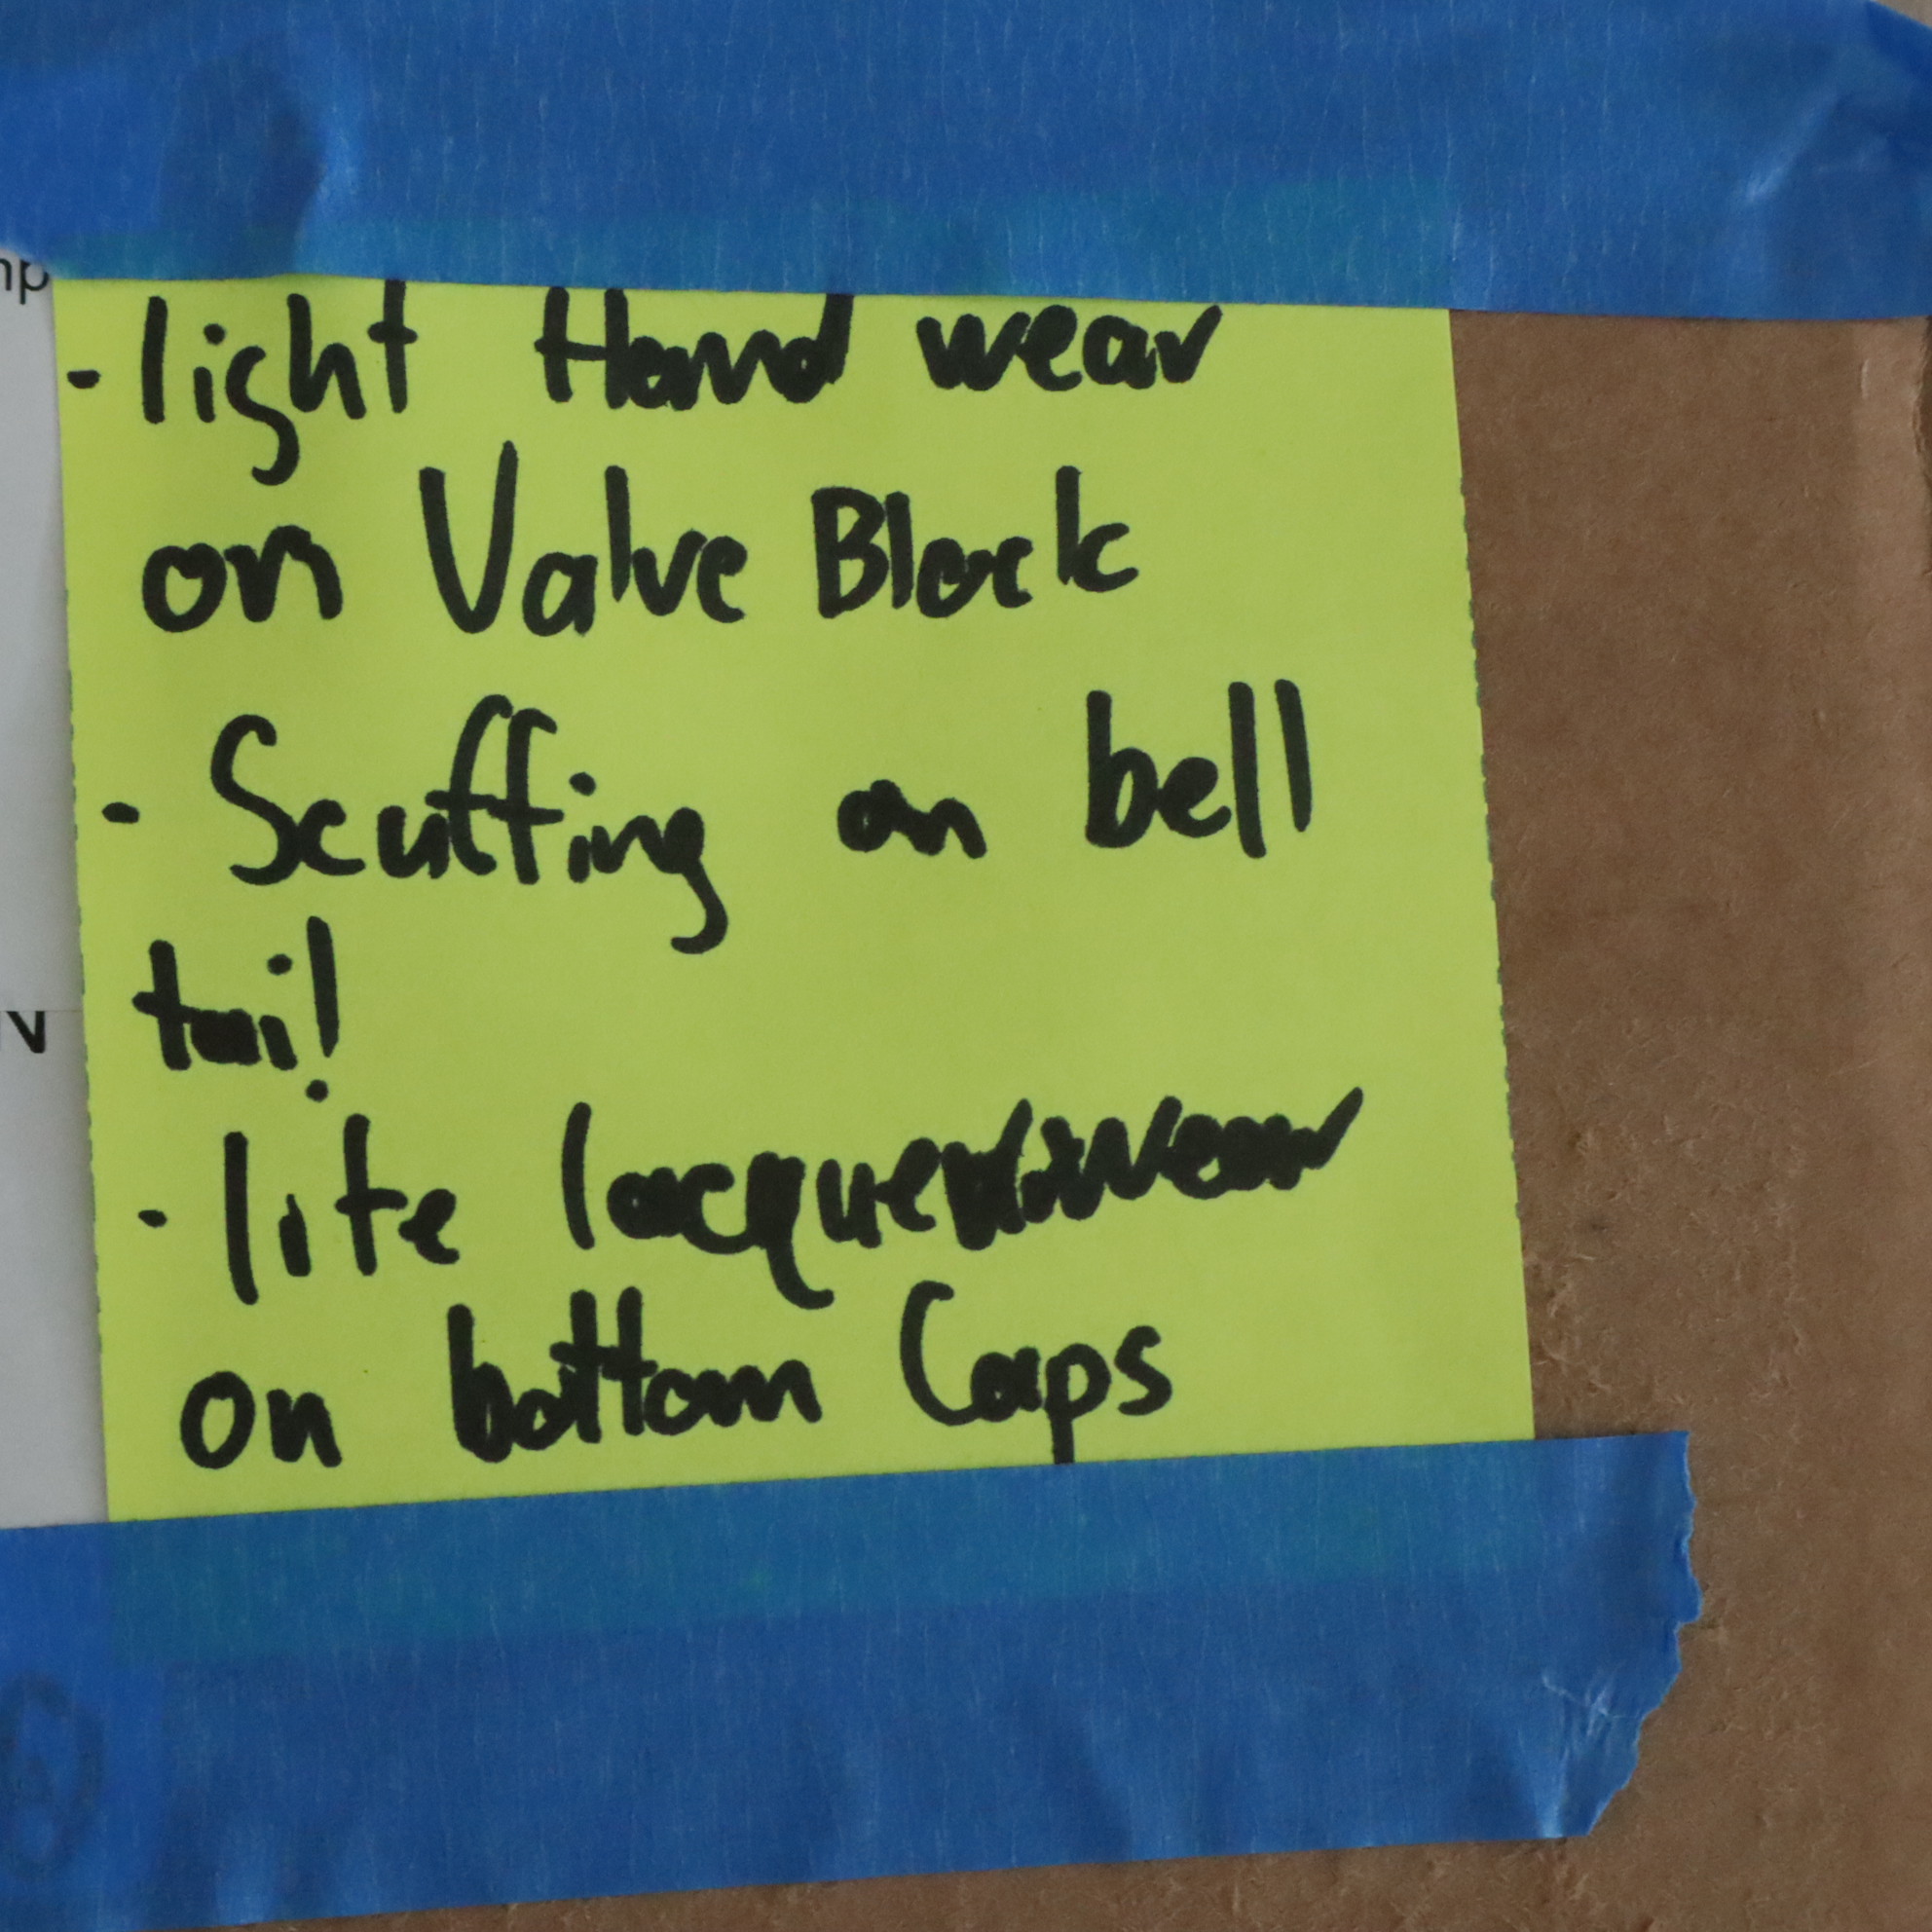 np
- light Hand wear
on Valve Block
- Scuffing on bell
tail
N
- lite lacquer wear
on bottom Caps